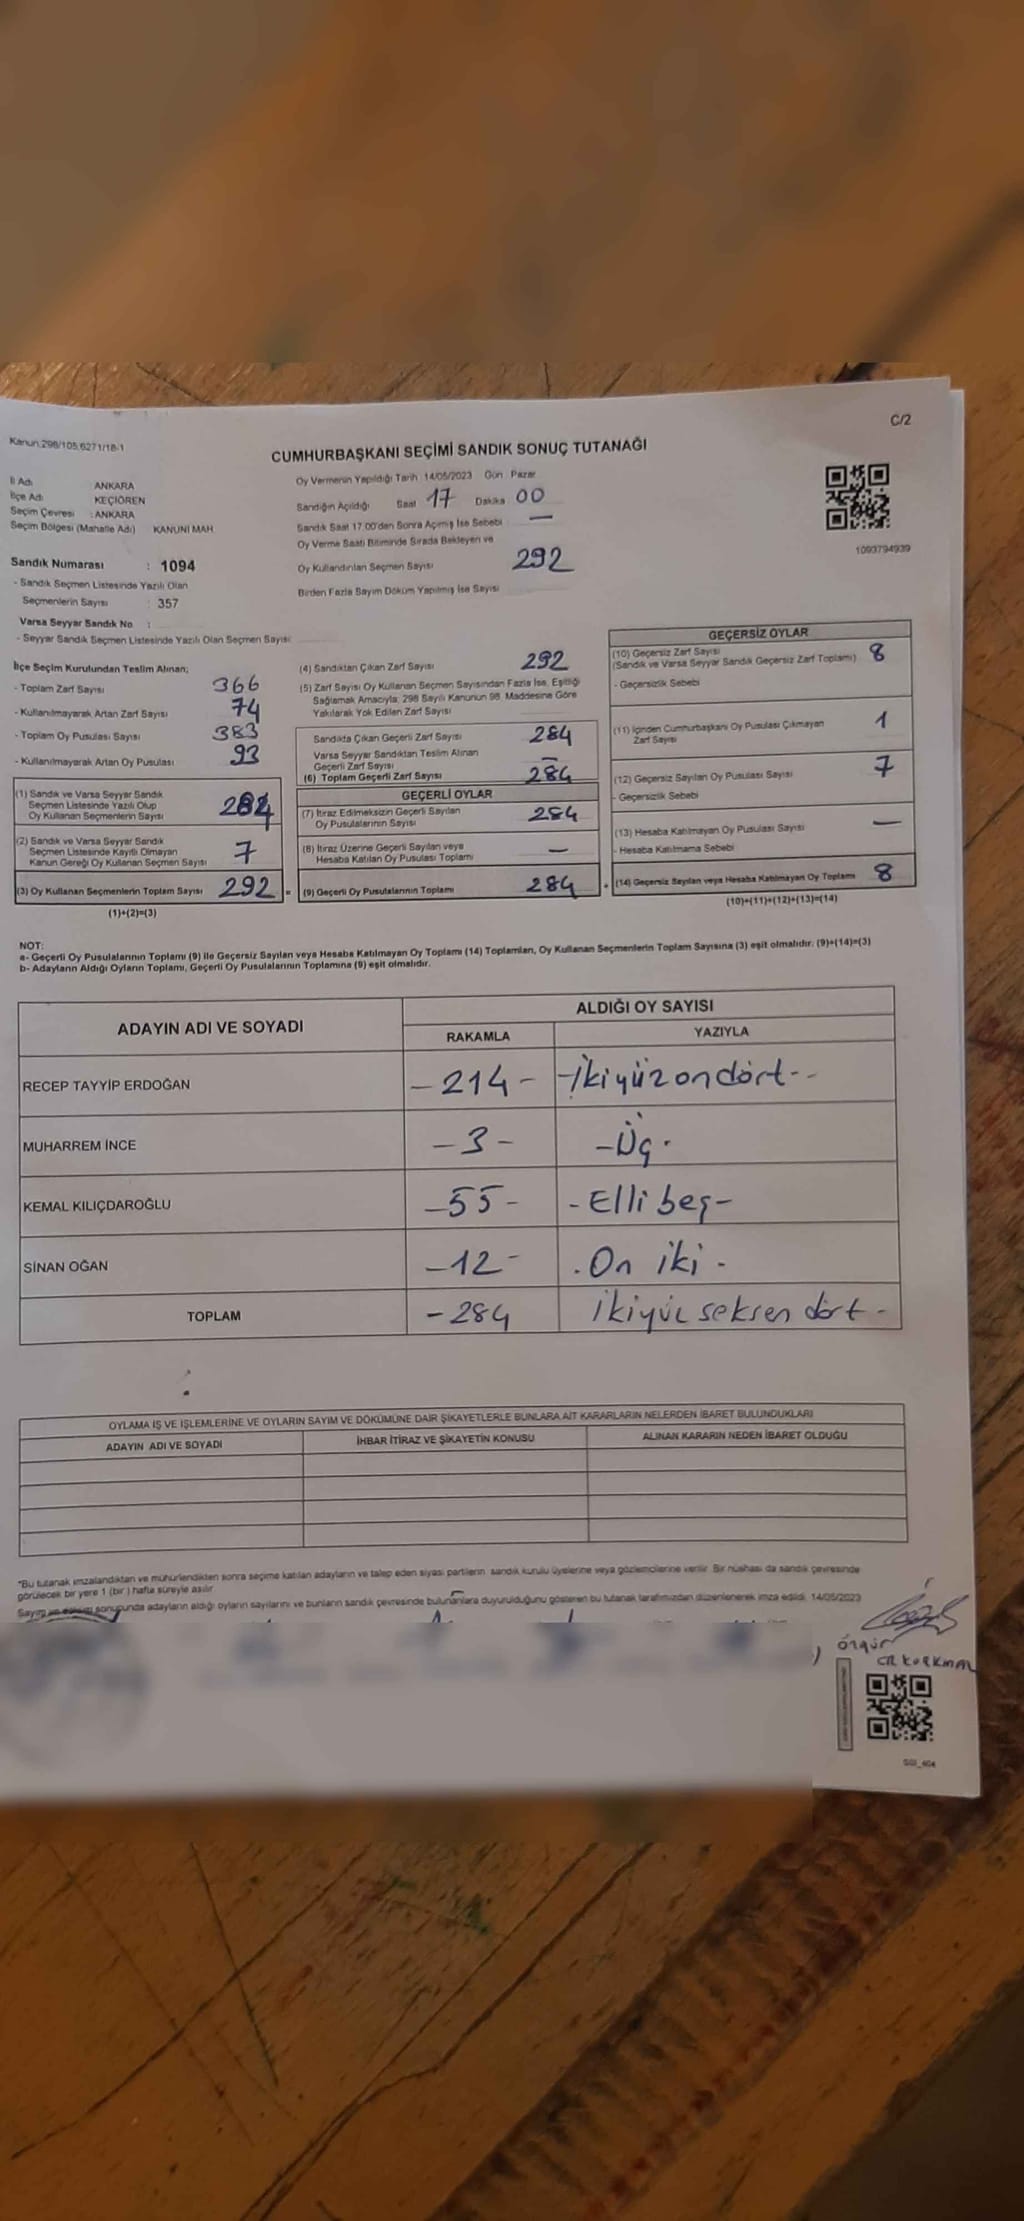 C/2
Kanun:298/105,6271/18-1
CUMHURBAŞKANI SEÇİMİ SANDIK SONUÇ TUTANAĞI
İl Adı ANKARA
İlçe Adı KEÇİÖREN
Seçim Çevresi : ANKARA
Seçim Bölgesi (Mahalle Adı) KANUNİ MAH
Sandık Numarası : 1094
- Sandık Seçmen Listesinde Yazılı Olan
Seçmenlerin Sayısı : 357
Varsa Seyyar Sandık No :
- Seyyar Sandık Seçmen Listesinde Yazılı Olan Seçmen Sayısı:
Oy Vermenin Yapıldığı Tarih 14/05/2023 Gün : Pazar
Sandığın Açıldığı Saat 17 Dakika 00
Sandık Saat 17.00'den Sonra Açımış İse Sebebi —
Oy Verme Saati Bitiminde Sırada Bekleyen ve
Oy Kullandırılan Seçmen Sayısı 292
Birden Fazla Sayım Döküm Yapılmış İse Sayısı
1093794939
İlçe Seçim Kurulundan Teslim Alınan;
- Toplam Zarf Sayısı 366
- Kullanılmayarak Artan Zarf Sayısı 74
- Toplam Oy Pusulası Sayısı 383
- Kullanılmayarak Artan Oy Pusulası 93
(1) Sandık ve Varsa Seyyar Sandık
Seçmen Listesinde Yazılı Olup
Oy Kullanan Seçmenlerin Sayısı
(2) Sandık ve Varsa Seyyar Sandık
Seçmen Listesinde Kayıtlı Olmayan
Kanun Gereği Oy Kullanan Seçmen Sayısı 7
(3) Oy Kullanan Seçmenlerin Toplam Sayısı 292 =
(1)+(2)=(3)
(4) Sandıktan Çıkan Zarf Sayısı 292
(5) Zarf Sayısı Oy Kullanan Seçmen Sayısından Fazla İse, Eşitliği
Sağlamak Amacıyla, 298 Sayılı Kanunun 98. Maddesine Göre
Yakılarak Yok Edilen Zarf Sayısı
Sandıkta Çıkan Geçerli Zarf Sayısı 284
Varsa Seyyar Sandıktan Teslim Alınan
Geçerli Zarf Sayısı —
(6) Toplam Geçerli Zarf Sayısı 284
GEÇERLİ OYLAR
(7) İtiraz Edilmeksizin Geçerli Sayılan
Oy Pusulalarının Sayısı 284
(8) İtiraz Üzerine Geçerli Sayılan veya
Hesaba Katılan Oy Pusulası Toplamı —
(9) Geçerli Oy Pusulalarının Toplamı 284 +
GEÇERSİZ OYLAR
(10) Geçersiz Zarf Sayısı
(Sandık ve Varsa Seyyar Sandık Geçersiz Zarf Toplamı) 8
- Geçersizlik Sebebi
(11) İçinden Cumhurbaşkanı Oy Pusulası Çıkmayan
Zarf Sayısı 1
(12) Geçersiz Sayılan Oy Pusulası Sayısı 7
- Geçersizlik Sebebi
(13) Hesaba Katılmayan Oy Pusulası Sayısı —
- Hesaba Katılmama Sebebi
(14) Geçersiz Sayılan veya Hesaba Katılmayan Oy Toplamı 8
(10)+(11)+(12)+(13)=(14)
NOT:
a- Geçerli Oy Pusulalarının Toplamı (9) ile Geçersiz Sayılan veya Hesaba Katılmayan Oy Toplamı (14) Toplamları, Oy Kullanan Seçmenlerin Toplam Sayısına (3) eşit olmalıdır. (9)+(14)=(3)
b- Adayların Aldığı Oyların Toplamı, Geçerli Oy Pusulalarının Toplamına (9) eşit olmalıdır.
ADAYIN ADI VE SOYADI
ALDIĞI OY SAYISI
RAKAMLA YAZIYLA
RECEP TAYYİP ERDOĞAN - 214 - -İkiyüz on dört--
MUHARREM İNCE - 3 - -Üç-
KEMAL KILIÇDAROĞLU -55- -Elli beş-
SİNAN OĞAN -12- -On iki-
TOPLAM -284 İkiyüz seksen dört-
OYLAMA İŞ VE İŞLEMLERİNE VE OYLARIN SAYIM VE DÖKÜMÜNE DAİR ŞİKAYETLERLE BUNLARA AİT KARARLARIN NELERDEN İBARET BULUNDUKLARI
ADAYIN ADI VE SOYADI İHBAR İTİRAZ VE ŞİKAYETİN KONUSU ALINAN KARARIN NEDEN İBARET OLDUĞU
*Bu tutanak imzalandıktan ve mühürlendikten sonra seçime katılan adayların ve talep eden siyasi partilerin sandık kurulu üyelerine veya gözlemcilerine verilir. Bir nüshası da sandık çevresinde
görülecek bir yere 1 (bir ) hafta süreyle asılır.
Sayım ve döküm sonucunda adayların aldığı oyların sayılarını ve bunların sandık çevresinde bulunanlara duyurulduğunu gösteren bu tutanak tarafımızdan düzenlenerek imza edildi. 14/05/2023
Özgür